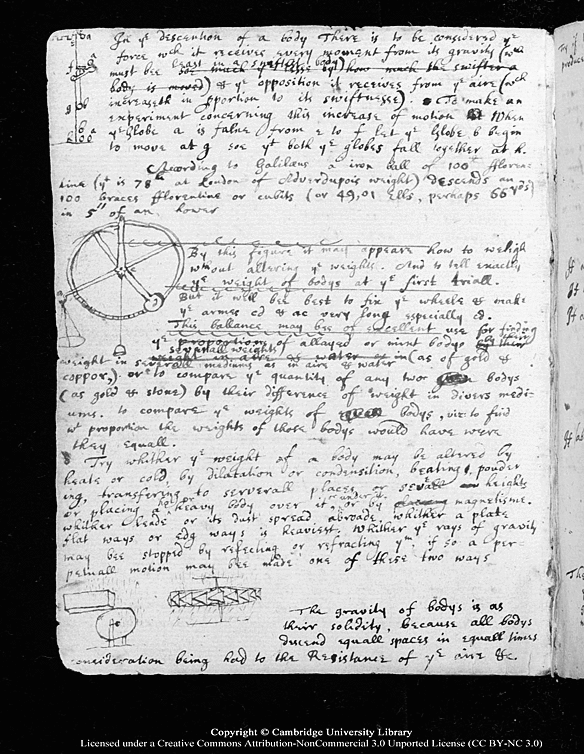 In yᵉ descention of a body There is to be considered yᵉ
force wᶜʰ it receives every moment from its gravity (wᶜʰ
must bee least in a swiftest body)
body is moved) & yᵉ opposition it receives from yᵉ aire (wᶜʰ
increaseth in proportion to its swiftnesse). To make an
experiment concerning this increase of motion When
yᵉ Globe a is falne from e to f let yᵉ Globe b begin
to move at g soe yᵗ both yᵉ globes fall together at h.
According to Galilæus a iron ball of 100ˡ florenc
tine (yᵗ is 78ˡ at London of Adverdupois weight) descends an
100 braces fflorentine or cubits (or 49,01 Ells, perhaps 66 yᵈˢ)
in 5″ of an hower
By this figure it may appeare how to weigh
wᵗʰout altering yᵉ weights. And to tell exactly
yᵉ weight of bodys at yᵉ first triall.
But it will bee best to fix yᵉ wheele & make
yᵉ armes cd & ac very long especially cd.
This ballance may bee of excellent use for finding
yᵉ proportions of allayed or mixt bodys
severall weights
weight in severall mediums as in aire & water (as of gold &
coppor,) or to compare yᵉ quantity of any two bodys
(as gold & stone) by their difference of weight in divers medi-
ums. to compare yᵉ weights of bodys, viz: to find
wᵗ proportion the weights of those bodys would have were
they equall.
Try whither yᵉ weight of a body may be altered by
heate or cold, by dilatation or condensition, beating, powder
ing, transfering to serverall places or heights
or placing a heavy body over it or under it, or by magnetisme.
whither leade or its dust spread abroade, whither a plate
flat ways or edg ways is heaviest. Whither yᵉ rays of gravity
may bee stopped by reflecting or refracting yᵐ, if so a per-
petuall motion may bee made one of these two ways
The gravity of bodys is as
their solidity, because all bodys
descend equall spaces in equall times
consideration being had to the Resistance of yᵉ aire &c.
Copyright © Cambridge University Library
Licensed under a Creative Commons Attribution-NonCommercial 3.0 Unported License (CC BY-NC 3.0)